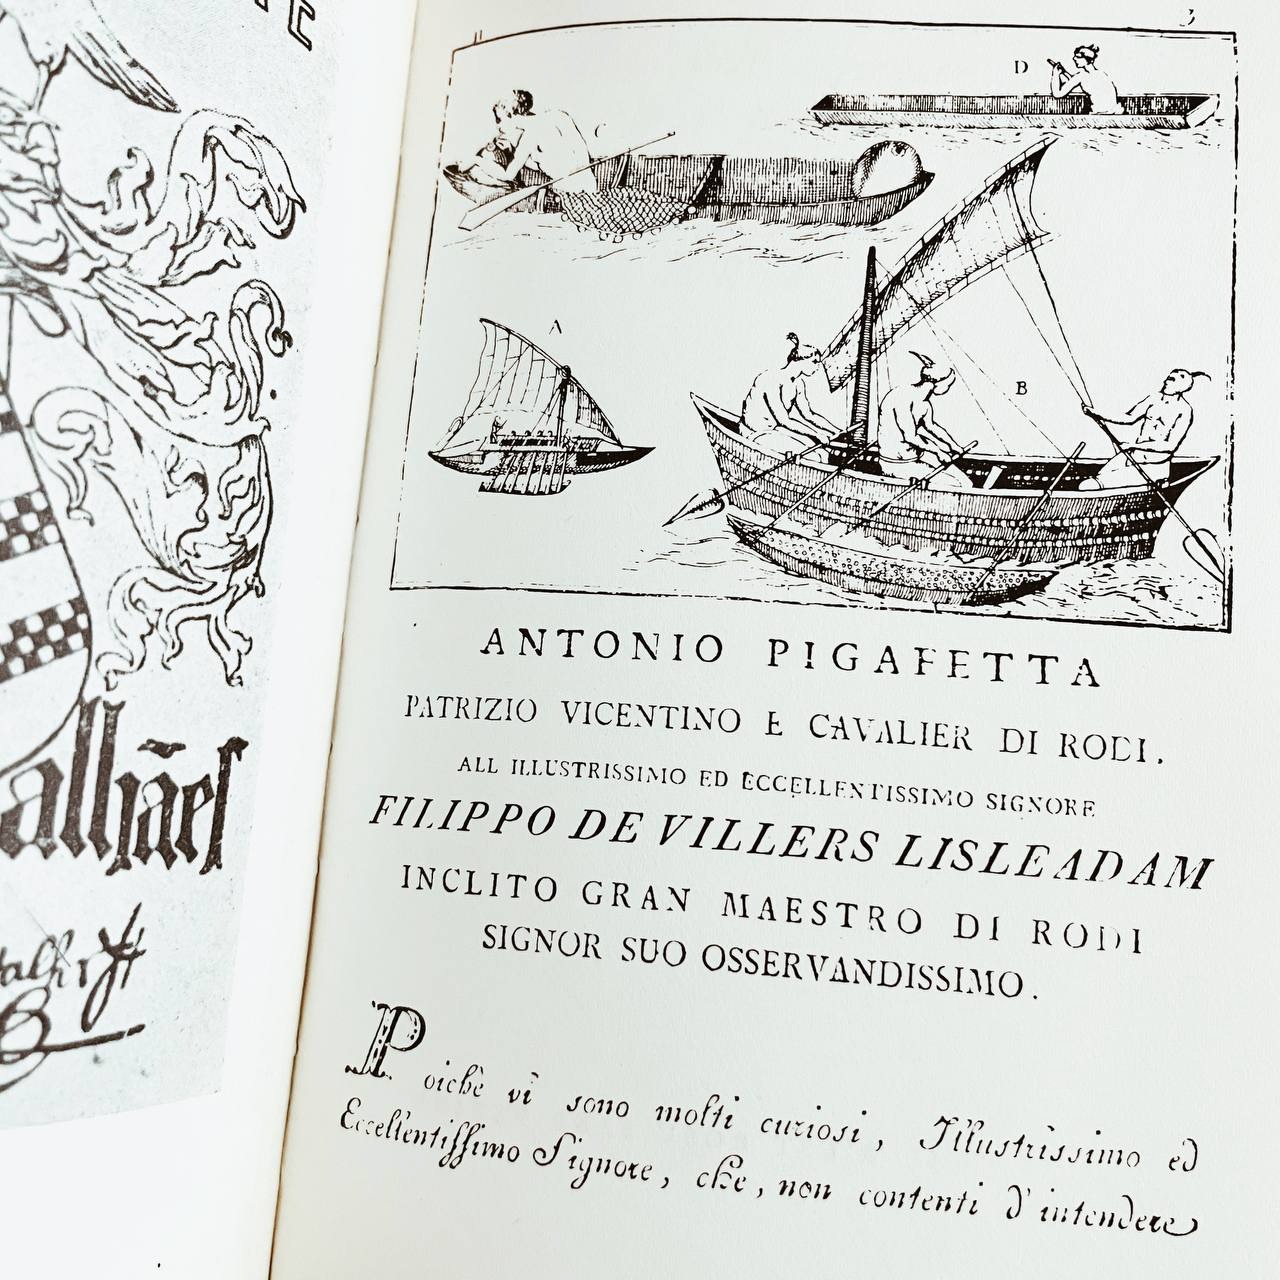 allhães
3
D
C
A
B
ANTONIO PIGAFETTA
PATRIZIO VICENTINO E CAVALIER DI RODI.
ALL ILLUSTRISSIMO ED ECCELLENTISSIMO SIGNORE
FILIPPO DE VILLERS LISLEADAM
INCLITO GRAN MAESTRO DI RODI
SIGNOR SUO OSSERVANDISSIMO.
Poichè vi sono molti curiosi, Illustrissimo ed
Eccellentissimo Signore, che, non contenti d'intendere